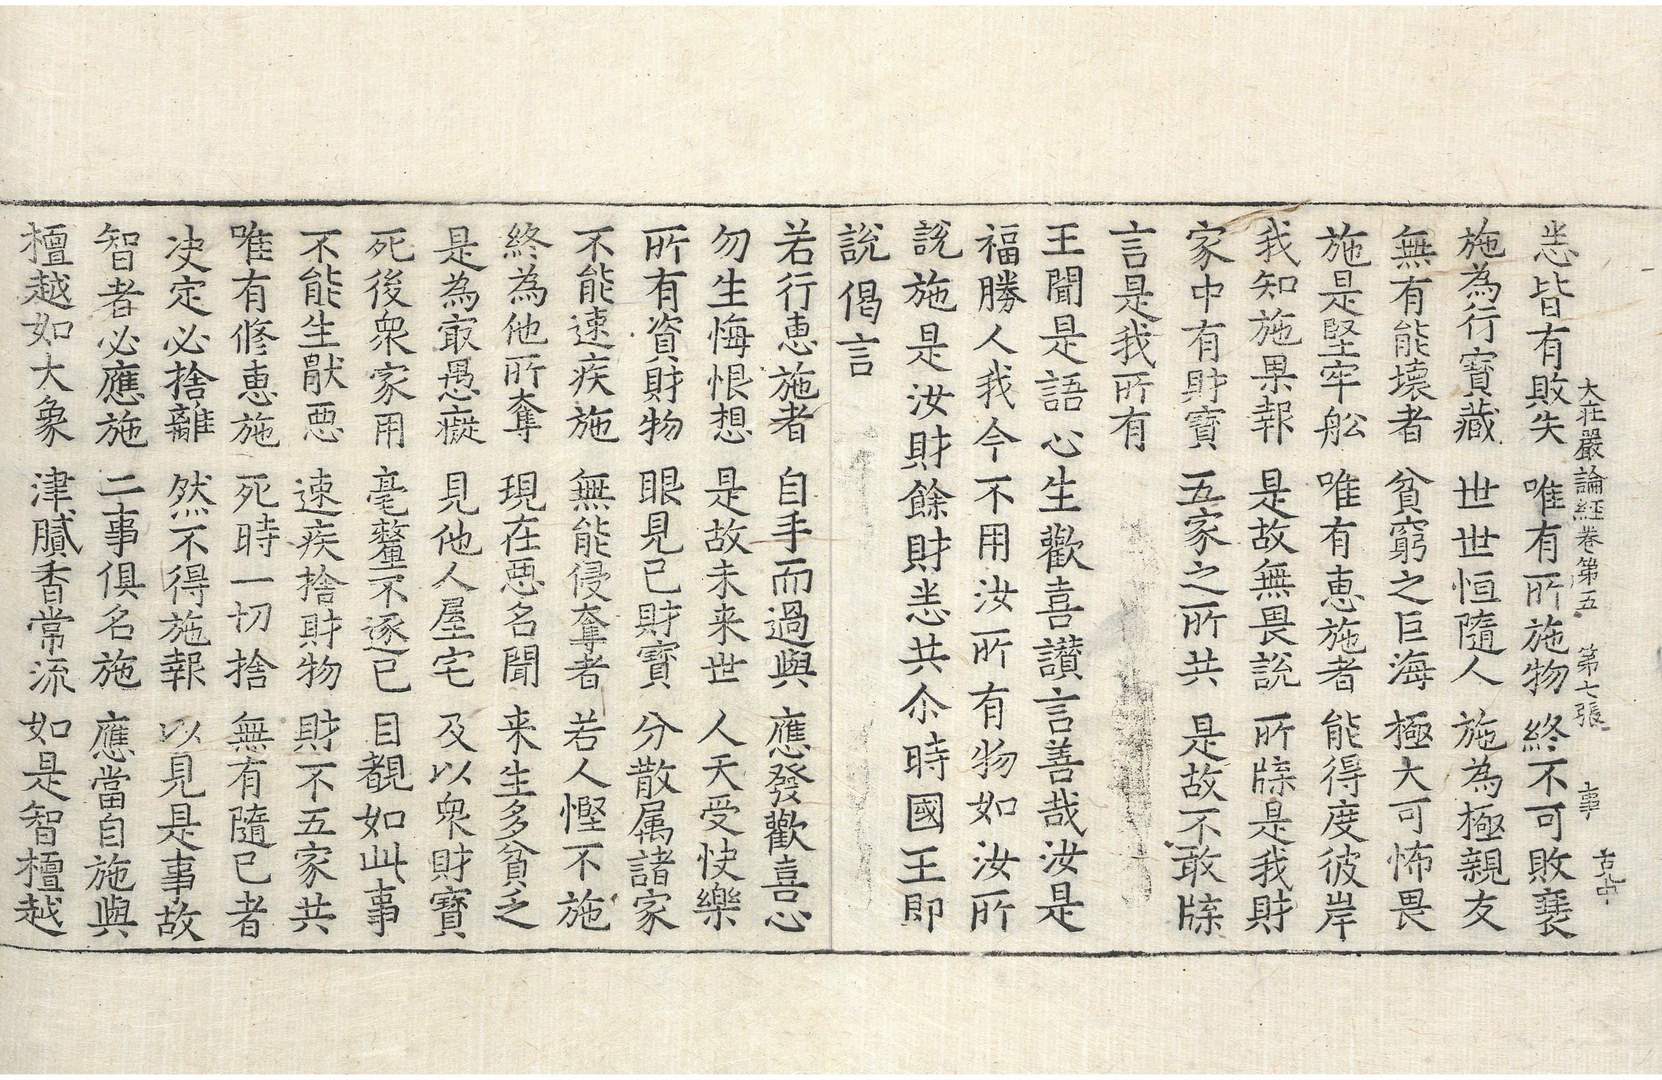 悉皆有敗失　唯有所施物　終不可敗衰
大莊嚴論經卷第五　第七張　事
施為行寶藏　世世恒隨人　施為極親友
無有能壞者　貧窮之巨海　極大可怖畏
施是堅牢舩　唯有恵施者　能得度彼岸
我知施果報　是故無畏說　所牒是我財
家中有財寶　五家之所共　是故不敢牒
言是我所有
王聞是語心生歡喜讃言善哉汝是
福勝人我今不用汝所有物如汝所
說施是汝財餘財悉共尒時國王即
說偈言
若行恵施者　自手而過與　應發歡喜心
勿生悔恨想　是故未来世　人天受快樂
所有資財物　眼見已財寶　分散属諸家
不能速疾施　無能侵奪者　若人慳不施
終為他所奪　現在惡名聞　来生多貧乏
是為㝡愚癡　見他人屋宅　及以衆財寶
死後衆家用　毫釐不逐已　目覩如此事
不能生猒惡　速疾捨財物　財不五家共
唯有修恵施　死時一切捨　無有隨已者
决定必捨離　然不得施報　以見是事故
智者必應施　二事俱名施　應當自施與
檀越如大象　津膩香常流　如是智檀越